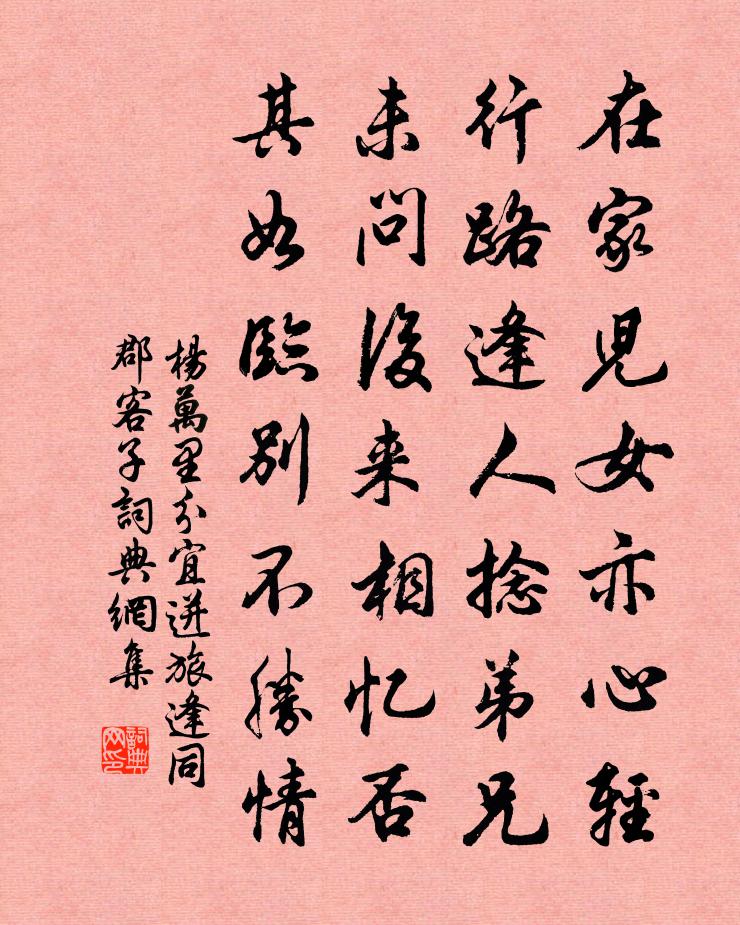 在家兒女亦心輕
行路逢人捴弟兄
未問後来相忆否
其如臨別不勝情
楊萬里分宜迸旅逢同
郡客子詞典網集
詞典网印